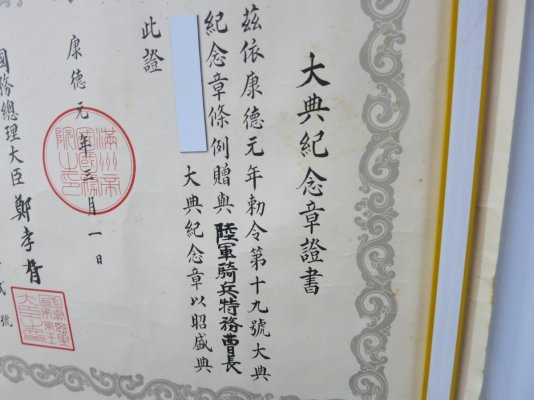 大典紀念章證書
茲依康德元年勅令第十九號大典
紀念章條例贈與陸軍騎兵特務曹長
大典紀念章以昭盛典
此證
康德元年三月一日
國務總理大臣鄭孝胥
號